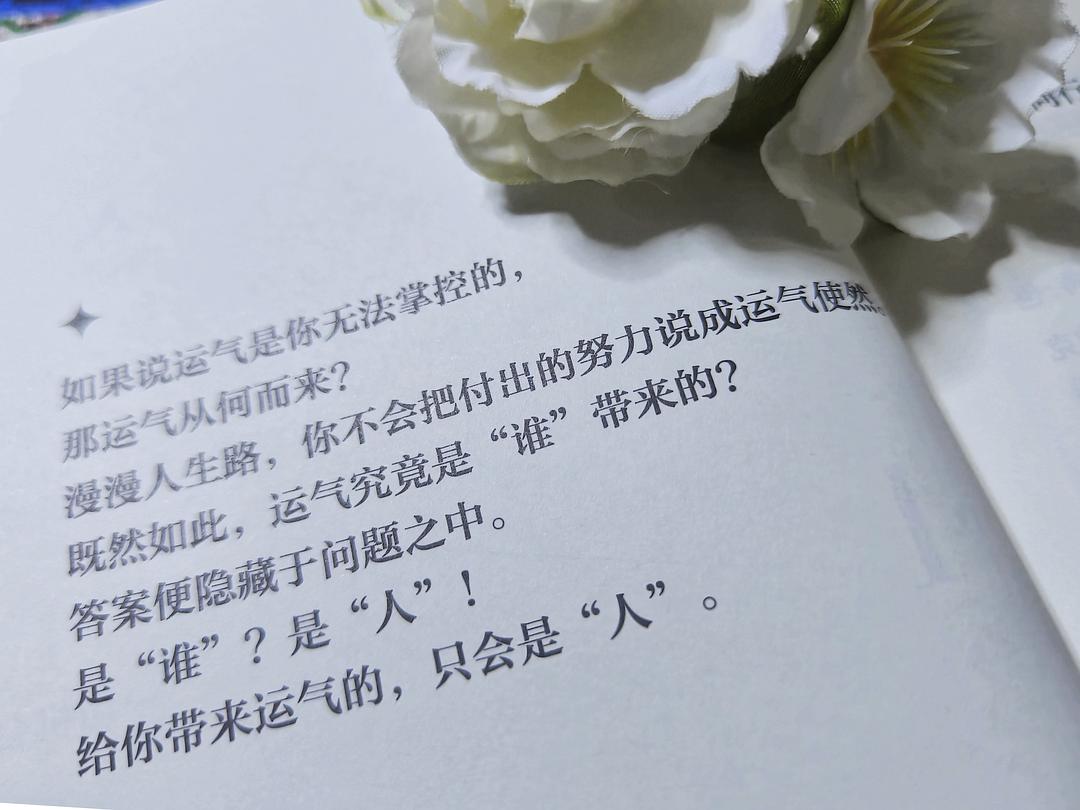 如果说运气是你无法掌控的，
那运气从何而来？
漫漫人生路，你不会把付出的努力说成运气使然。
既然如此，运气究竟是“谁”带来的？
答案便隐藏于问题之中。
是“谁”？是“人”！
给你带来运气的，只会是“人”。